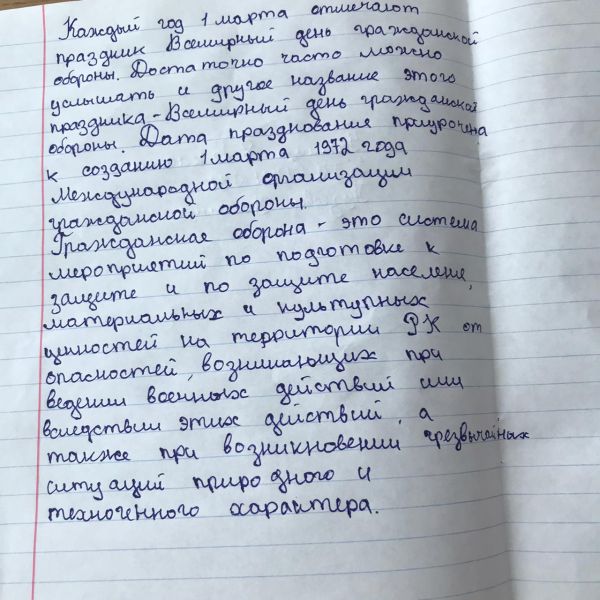 Каждый год 1 марта отмечают
праздник Всемирный день гражданской
обороны. Достаточно часто можно
услышать и другое название этого
праздника - Всемирный день гражданской
обороны. Дата празднования приурочена
к созданию 1 марта 1972 года
Международной организации
гражданской обороны.
Гражданская оборона - это система
мероприятий по подготовке к
защите и по защите населения,
материальных и культурных
ценностей на территории РК от
опасностей, возникающих при
ведении военных действий или
вследствии этих действий, а
также при возникновении чрезвычайных
ситуаций природного и
техногенного характера.